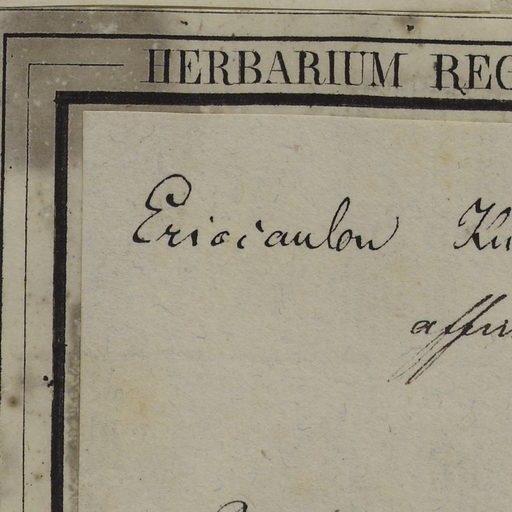 HERBARIUM REG
Eriocaulon Ku
affin